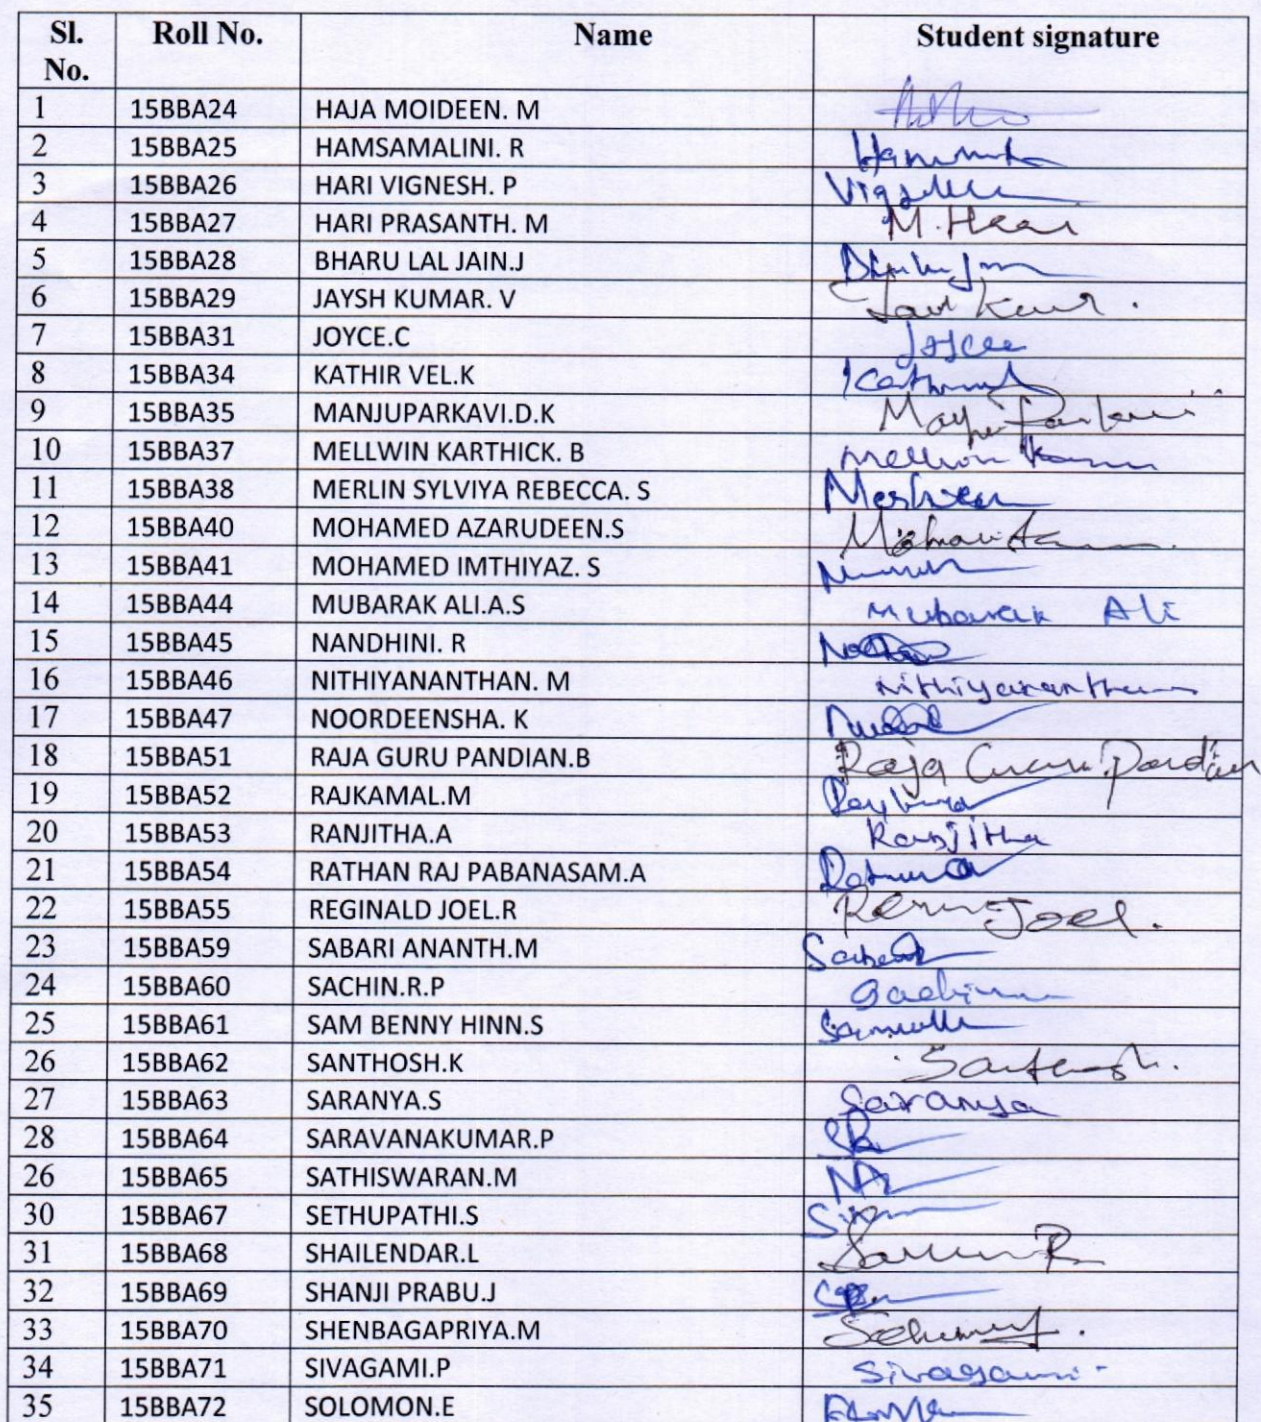 Sl. No. Roll No. Name Student signature
1 15BBA24 HAJA MOIDEEN. M
2 15BBA25 HAMSAMALINI. R
3 15BBA26 HARI VIGNESH. P
4 15BBA27 HARI PRASANTH. M M.
5 15BBA28 BHARU LAL JAIN.J
6 15BBA29 JAYSH KUMAR. V
7 15BBA31 JOYCE.C Joyce
8 15BBA34 KATHIR VEL.K
9 15BBA35 MANJUPARKAVI.D.K
10 15BBA37 MELLWIN KARTHICK. B
11 15BBA38 MERLIN SYLVIYA REBECCA. S
12 15BBA40 MOHAMED AZARUDEEN.S
13 15BBA41 MOHAMED IMTHIYAZ. S
14 15BBA44 MUBARAK ALI.A.S Mubarak Ali
15 15BBA45 NANDHINI. R
16 15BBA46 NITHIYANANTHAN. M
17 15BBA47 NOORDEENSHA. K
18 15BBA51 RAJA GURU PANDIAN.B Raja Guru Pandian
19 15BBA52 RAJKAMAL.M
20 15BBA53 RANJITHA.A Ranjitha
21 15BBA54 RATHAN RAJ PABANASAM.A
22 15BBA55 REGINALD JOEL.R Joel.
23 15BBA59 SABARI ANANTH.M
24 15BBA60 SACHIN.R.P
25 15BBA61 SAM BENNY HINN.S
26 15BBA62 SANTHOSH.K
27 15BBA63 SARANYA.S Saranya
28 15BBA64 SARAVANAKUMAR.P
26 15BBA65 SATHISWARAN.M
30 15BBA67 SETHUPATHI.S
31 15BBA68 SHAILENDAR.L
32 15BBA69 SHANJI PRABU.J
33 15BBA70 SHENBAGAPRIYA.M
34 15BBA71 SIVAGAMI.P Sivagami
35 15BBA72 SOLOMON.E